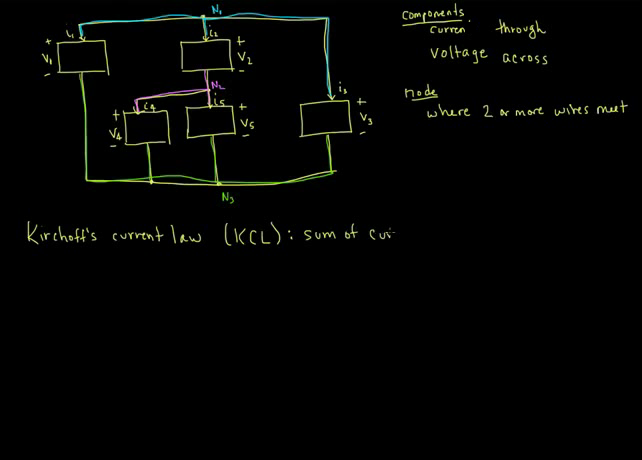 N1
i1
i2
+
V1
-
+
V2
-
N2
i4
i5
i3
+
V4
-
+
V5
-
+
V3
-
N3
Components
curren through
voltage across
node
where 2 or more wires meet
Kirchoff's current law (KCL): sum of cur